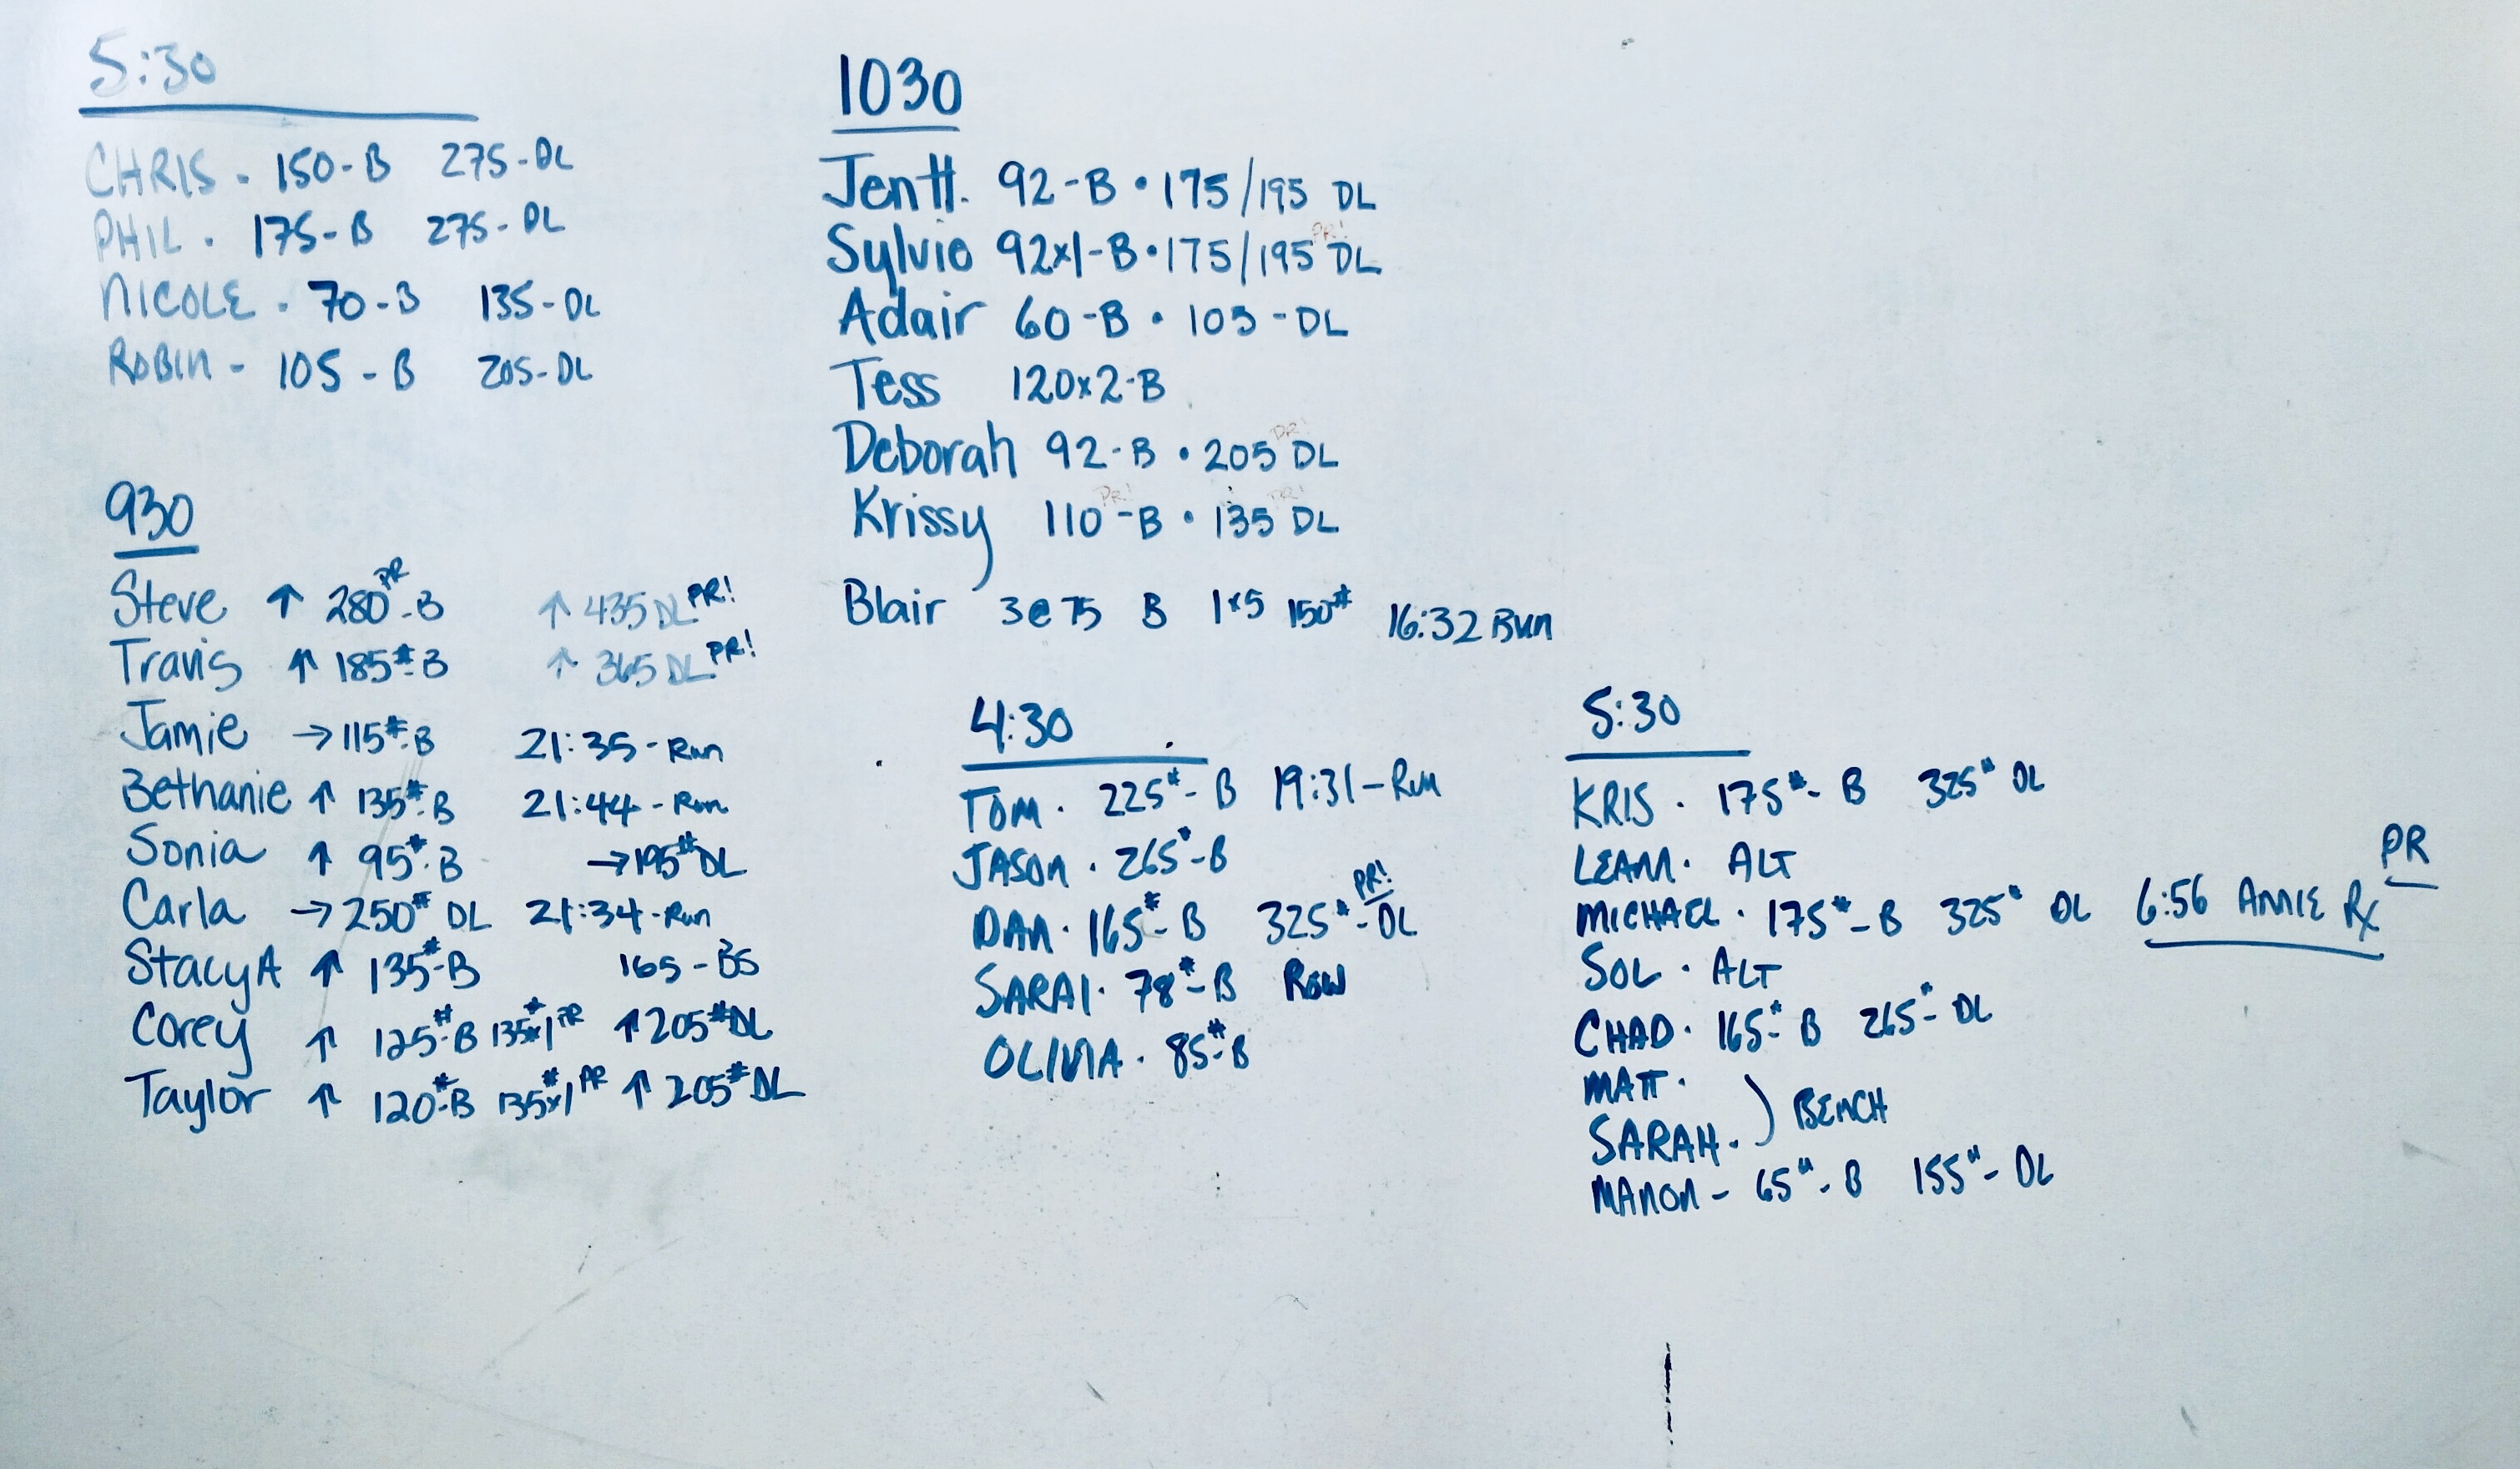 5:30
CHRIS - 150-B 275-DL
PHIL - 175-B 275-DL
NICOLE - 70-B 135-DL
ROBIN - 105-B 205-DL
930
Steve ↑ 280 PR -B ↑ 435 DL PR!
Travis ↑ 185#-B ↑ 365 DL PR!
Jamie → 115#-B 21:35-Run
Bethanie ↑ 135#-B 21:44-Run
Sonia ↑ 95#-B → 195# DL
Carla → 250# DL 21:34-Run
Stacy A ↑ 135#-B 165-BS
Corey ↑ 125#-B 135#x1 PR ↑ 205# DL
Taylor ↑ 120#-B 135#x1 PR ↑ 205# DL
1030
Jen H. 92-B • 175/195 DL
Sylvie 92x1-B • 175/195 PR! DL
Adair 60-B • 103-DL
Tess 120x2-B
Deborah 92-B • 205 PR! DL
Krissy 110 PR! -B • 135 PR! DL
Blair 3@75 B 1x5 150# 16:32 Run
4:30
TOM • 225#-B 19:31-Run
JASON • 265#-B
DAN • 165#-B 325#-DL PR!
SARAI • 78#-B ROW
OLIVIA • 85#-B
5:30
KRIS • 175#-B 325# DL
LEANN • ALT
MICHAEL • 175#-B 325# DL 6:56 ANNIE Rx PR
SOL • ALT
CHAD • 165#-B 265#-DL
MATT •
SARAH • ) BENCH
MANON - 65#-B 155#-DL